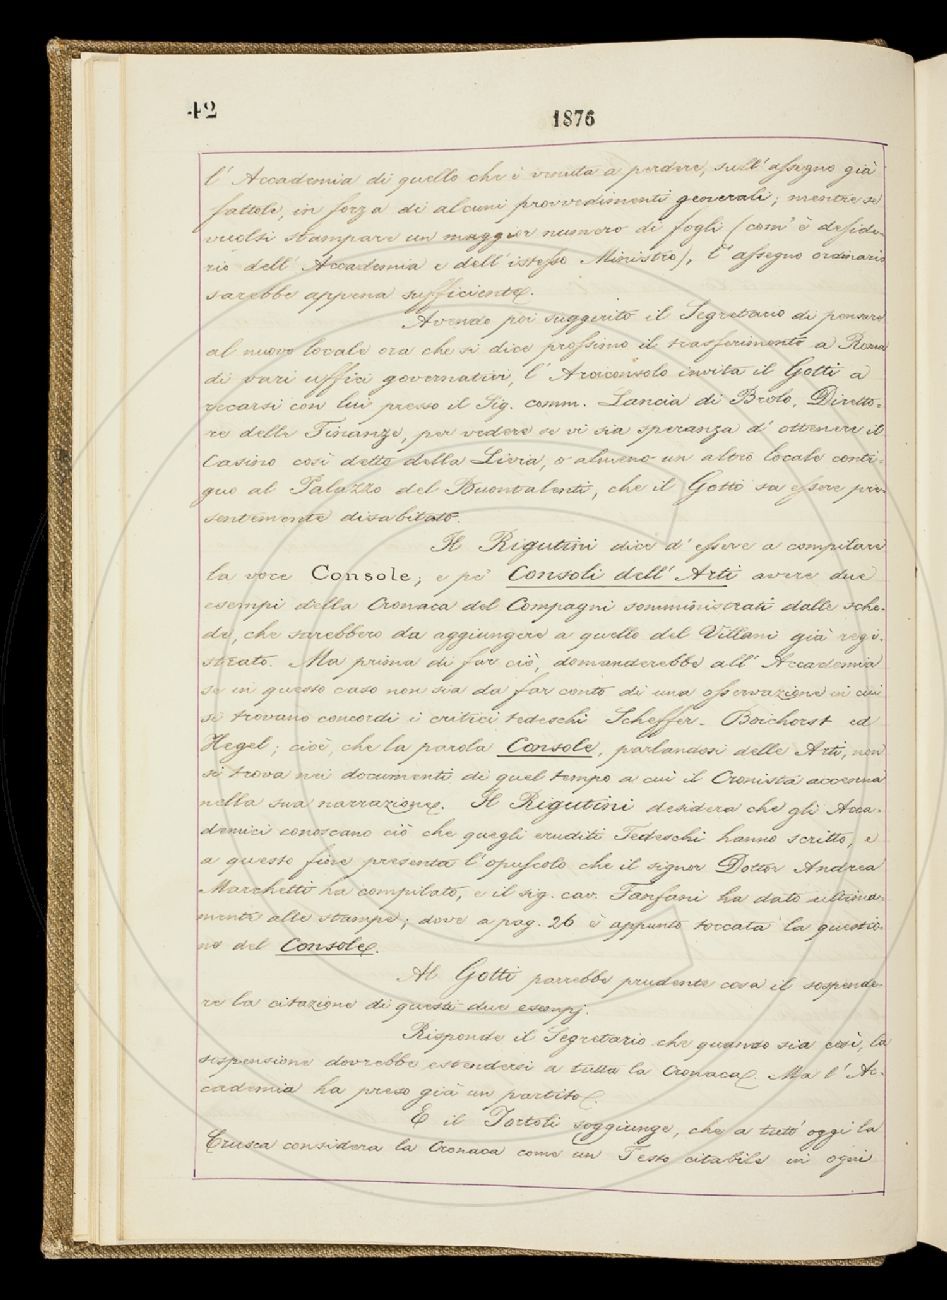 42
1876
l' Accademia di quello che è venuta a perdere, sull' assegno già
fattole, in forza di alcuni provvedimenti generali; mentre se
vuolsi stampare un maggior numero di fogli (com' è deside-
rio dell' Accademia e dell' istesso Ministro), l' assegno ordinario
sarebbe appena sufficiente.
Avendo poi suggerito il Segretario di pensare
al nuovo locale ora che si dice prossimo il trasferimento a Roma
di vari uffici governativi, l' Arciconsolo invita il Gotti a
recarsi con lui presso il Sig. comm. Lancia di Brolo, Diretto-
re delle Finanze, per vedere se vi sia speranza d' ottenere il
Casino così detto della Livia, o almeno un altro locale conti-
guo al Palazzo del Buontalenti, che il Gotti sa essere pre-
sentemente disabitato.
Il Rigutini dice d' essere a compilare
la voce Console; e pe' Consoli dell' Arti avere due
esempi della Cronaca del Compagni somministrati dalle sche-
de, che sarebbero da aggiungere a quello del Villani già regi-
strato. Ma prima di far ciò, domanderebbe all' Accademia
se in questo caso non sia da far conto di una osservazione in cui
si trovano concordi i critici tedeschi Scheffer-Boichorst ed
Hegel; cioè, che la parola Console, parlandosi delle Arti, non
si trova nei documenti di quel tempo a cui il Cronista accenna
nella sua narrazione. Il Rigutini desidera che gli Acca-
demici conoscano ciò che quegli eruditi Tedeschi hanno scritto, e
a questo fine presenta l' opuscolo che il signor Dottor Andrea
Marchetti ha compilato, e il sig. cav. Fanfani ha dato ultima-
mente alle stampe; dove a pag. 26 è appunto toccata la questio-
ne del Console.
Al Gotti parrebbe prudente cosa il sospende-
re la citazione di questi due esempj.
Risponde il Segretario che quando sia così, la
sospensione dovrebbe estendersi a tutta la Cronaca. Ma l' Ac-
cademia ha preso già un partito.
E il Tortoli soggiunge, che a tutt' oggi la
Crusca considera la Cronaca come un Testo citabile in ogni